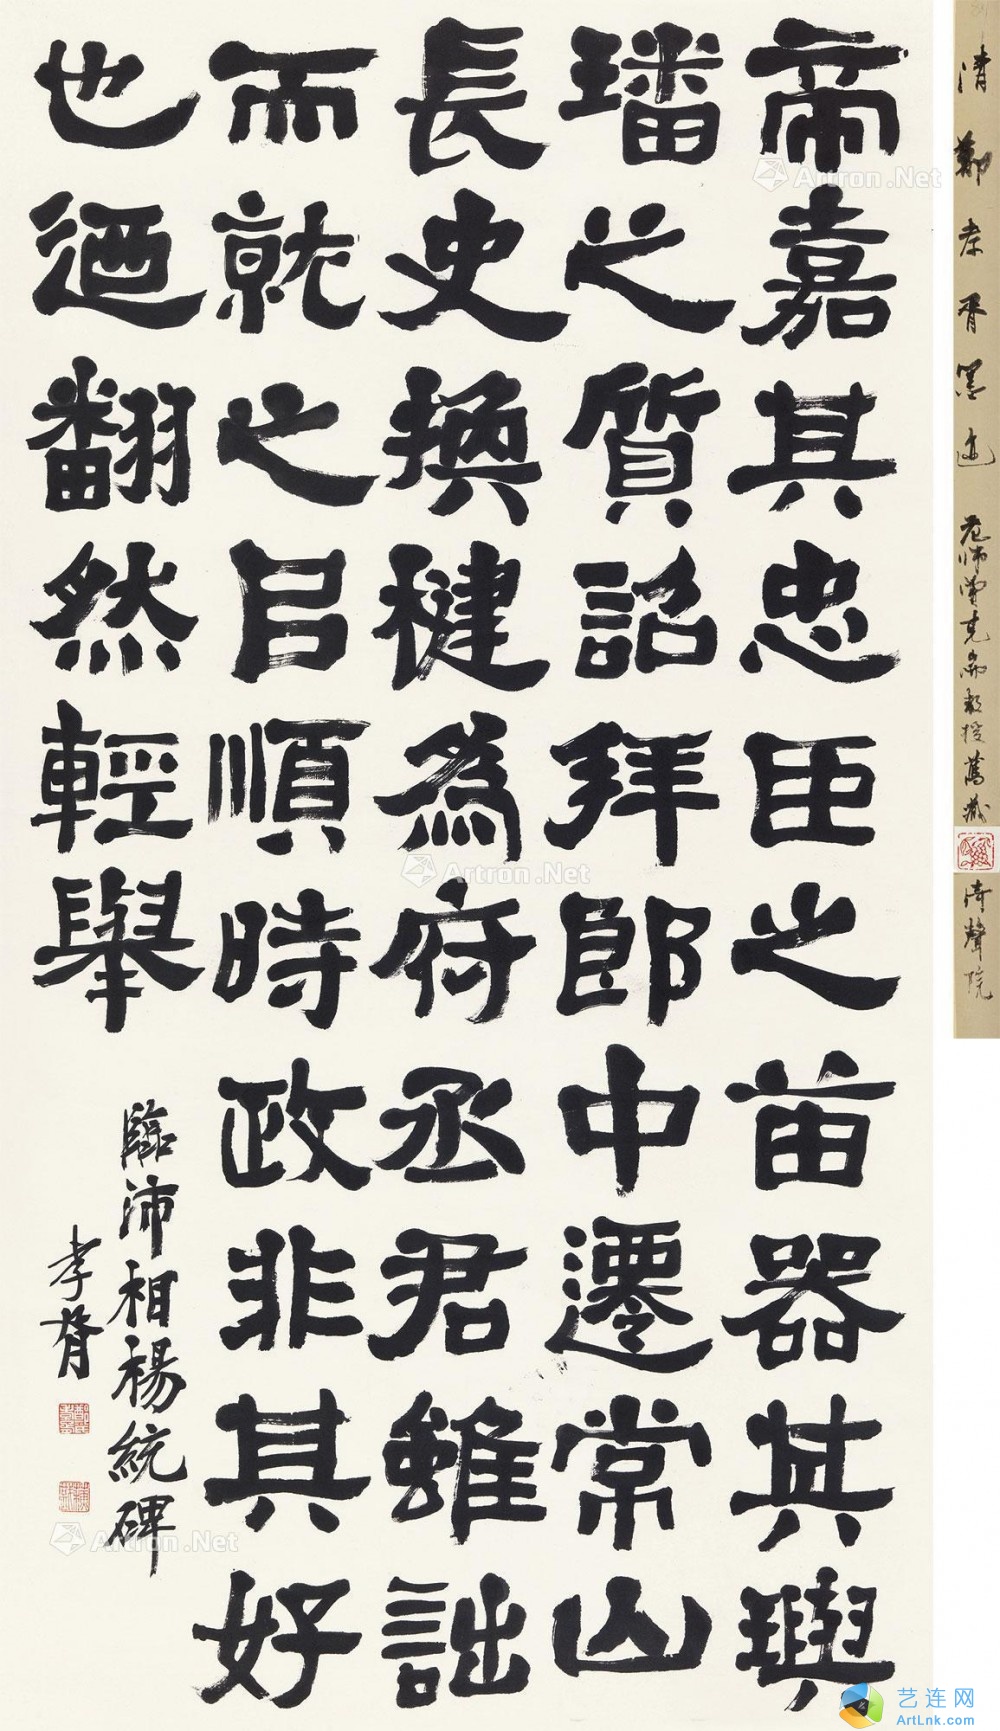 帝嘉其忠臣之苗器其璵
璠之質詔拜郎中遷常山
長史換楗為府丞君雖詘
而就之㠯順時政非其好
也迺翻然輕舉
臨沛相楊統碑
孝胥
清鄭孝胥墨迹
範師曾克耑教授舊藏
清聲院
Artron.Net
Artron.Net
Artron.Net
艺连网
ArtLnk.com